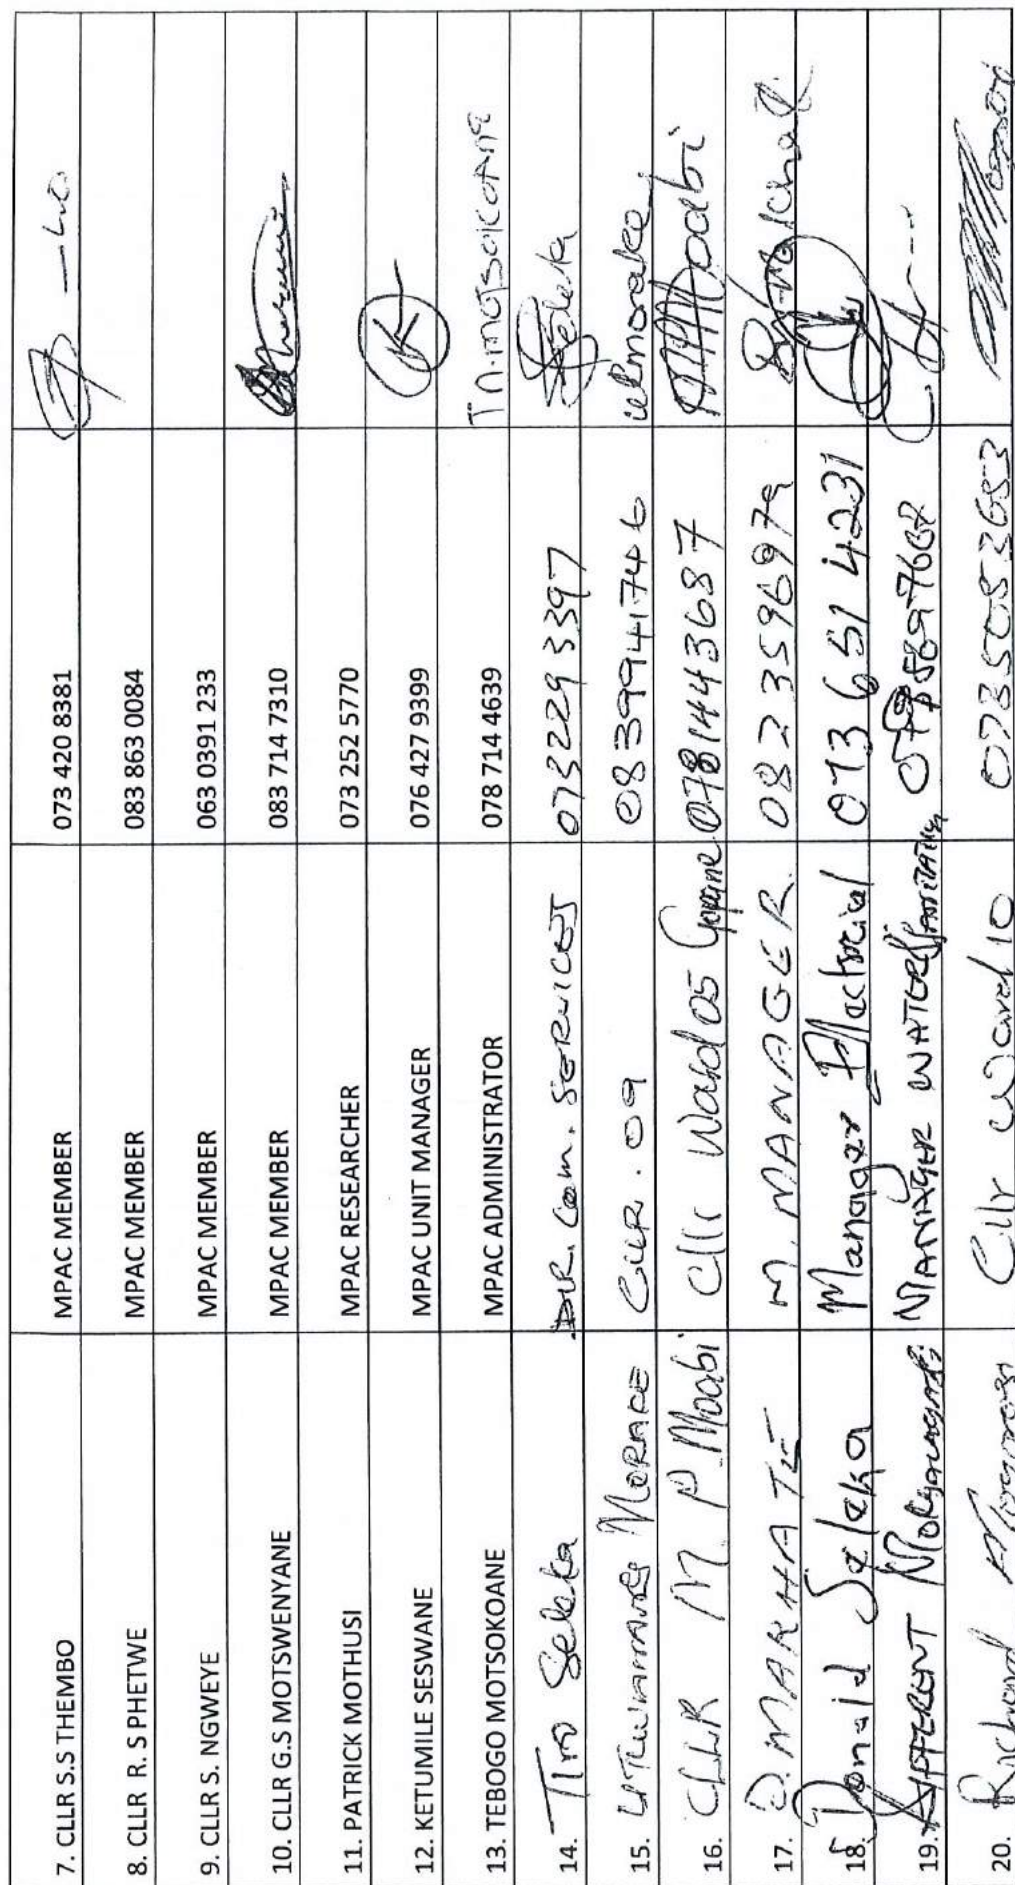 7. CLLR S.S THEMBO MPAC MEMBER 073 420 8381
8. CLLR R. S PHETWE MPAC MEMBER 083 863 0084
9. CLLR S. NGWEYE MPAC MEMBER 063 0391 233
10. CLLR G.S MOTSWENYANE MPAC MEMBER 083 714 7310
11. PATRICK MOTHUSI MPAC RESEARCHER 073 252 5770
12. KETUMILE SESWANE MPAC UNIT MANAGER 076 427 9399
13. TEBOGO MOTSOKOANE MPAC ADMINISTRATOR 078 714 4639 T.n.motsokoane
14. Tiro Seleka DIR. Com. SERVICES 0732293397 Seleka
15. MORAKE 09 0839941746
16. CLLR M P Moabi Cllr Ward 05 Gopane 0781443687 MPMoabi
17. D. MAKHATE M. MANAGER. 082 3596979
18. Donald Seleka Manager Electrical 073 651 4231
19. MANAGER WATER
20. Richard Cllr Ward 10 0735083683